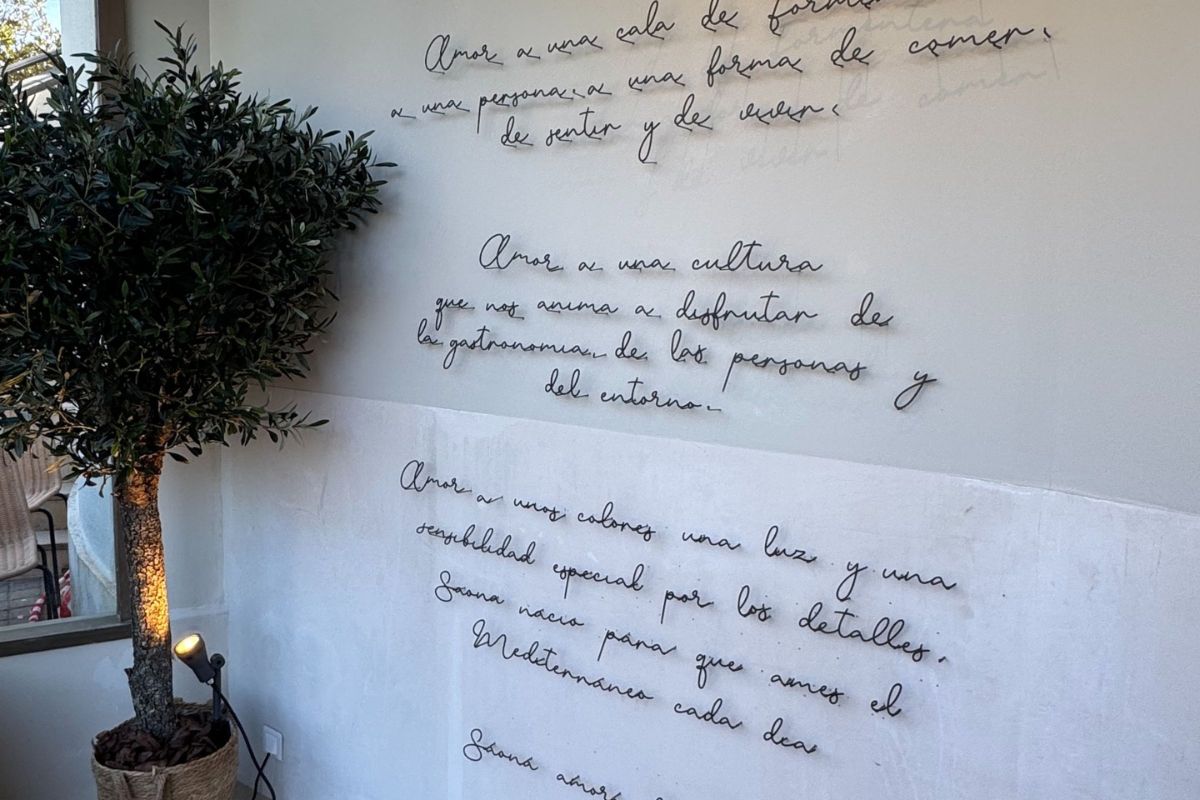 Amor a una cala de
a una persona, a una forma de comer,
de sentir y de vivir.
Amor a una cultura
que nos anima a disfrutar de
la gastronomia, de las personas y
del entorno.
Amor a unos colores una luz y una
sensibilidad especial por los detalles.
Saona nacio para que ames el
Mediterraneo cada dia
Saona